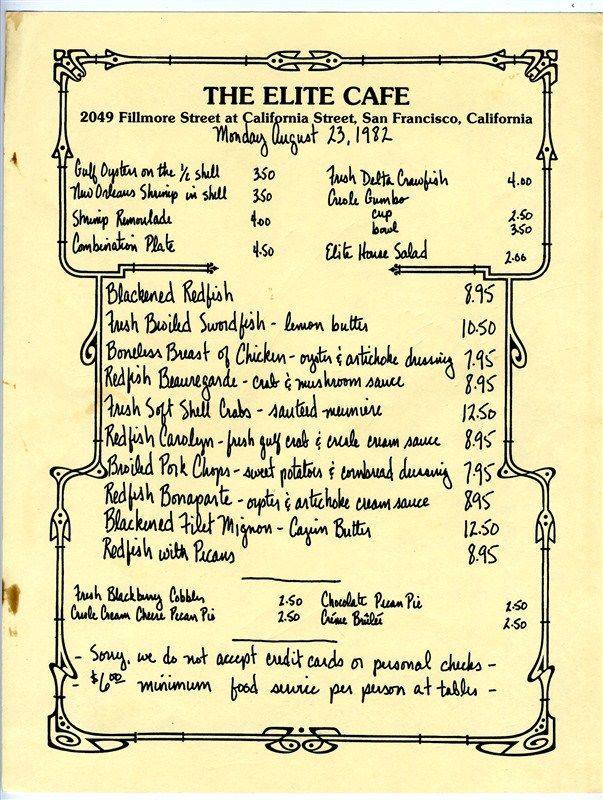 THE ELITE CAFE
2049 Fillmore Street at California Street, San Francisco, California
Monday August 23, 1982
Gulf Oysters on the 1/2 shell 3.50
New Orleans Shrimp in shell 3.50
Shrimp Remoulade 4.00
Combination Plate 4.50
Fresh Delta Crawfish 4.00
Creole Gumbo
cup 2.50
bowl 3.50
Elite House Salad 2.00
Blackened Redfish 8.95
Fresh Broiled Swordfish - lemon butter 10.50
Boneless Breast of Chicken - oyster & artichoke dressing 7.95
Redfish Beauregarde - crab & mushroom sauce 8.95
Fresh Soft Shell Crabs - sauteed meuniere 12.50
Redfish Carolyn - fresh gulf crab & creole cream sauce 8.95
Broiled Pork Chops - sweet potatoes & cornbread dressing 7.95
Redfish Bonaparte - oyster & artichoke cream sauce 8.95
Blackened Filet Mignon - Cajun Butter 12.50
Redfish with Pecans 8.95
Fresh Blackberry Cobbler 2.50
Creole Cream Cheese Pecan Pie 2.50
Chocolate Pecan Pie 2.50
Créme Brûlée 2.50
- Sorry, we do not accept credit cards or personal checks -
- $6.00 minimum food service per person at tables -